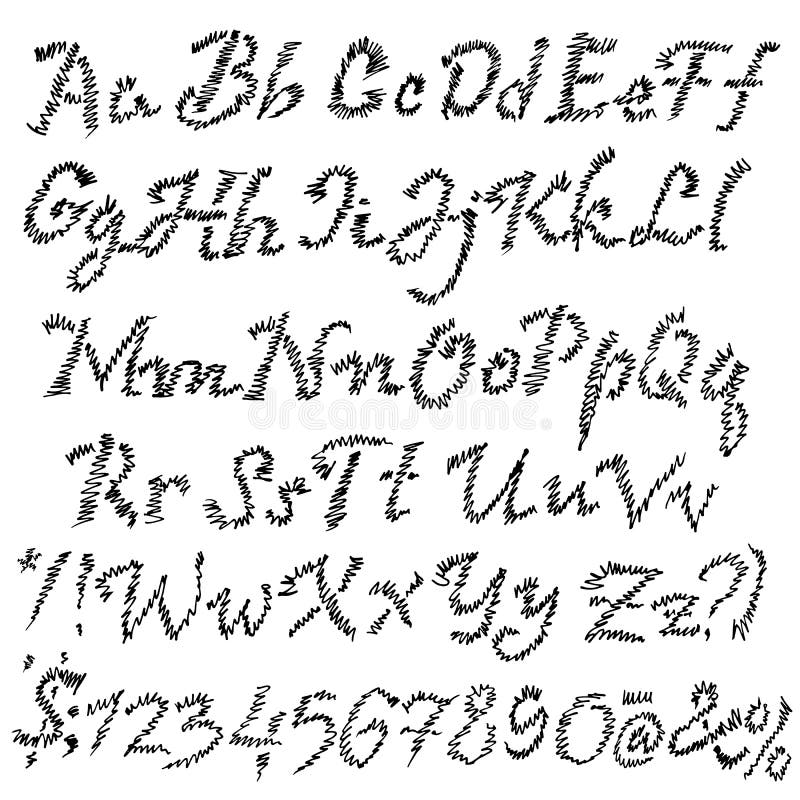 Aa Bb Cc Dd Ee Ff
Gg Hh Ii Jj Kk Ll
Mm Nn Oo Pp Qq
Rr Ss Tt Uu Vv
*/! Ww Xx Yy Zz ?)
$:1234567890@&%
dreamstime